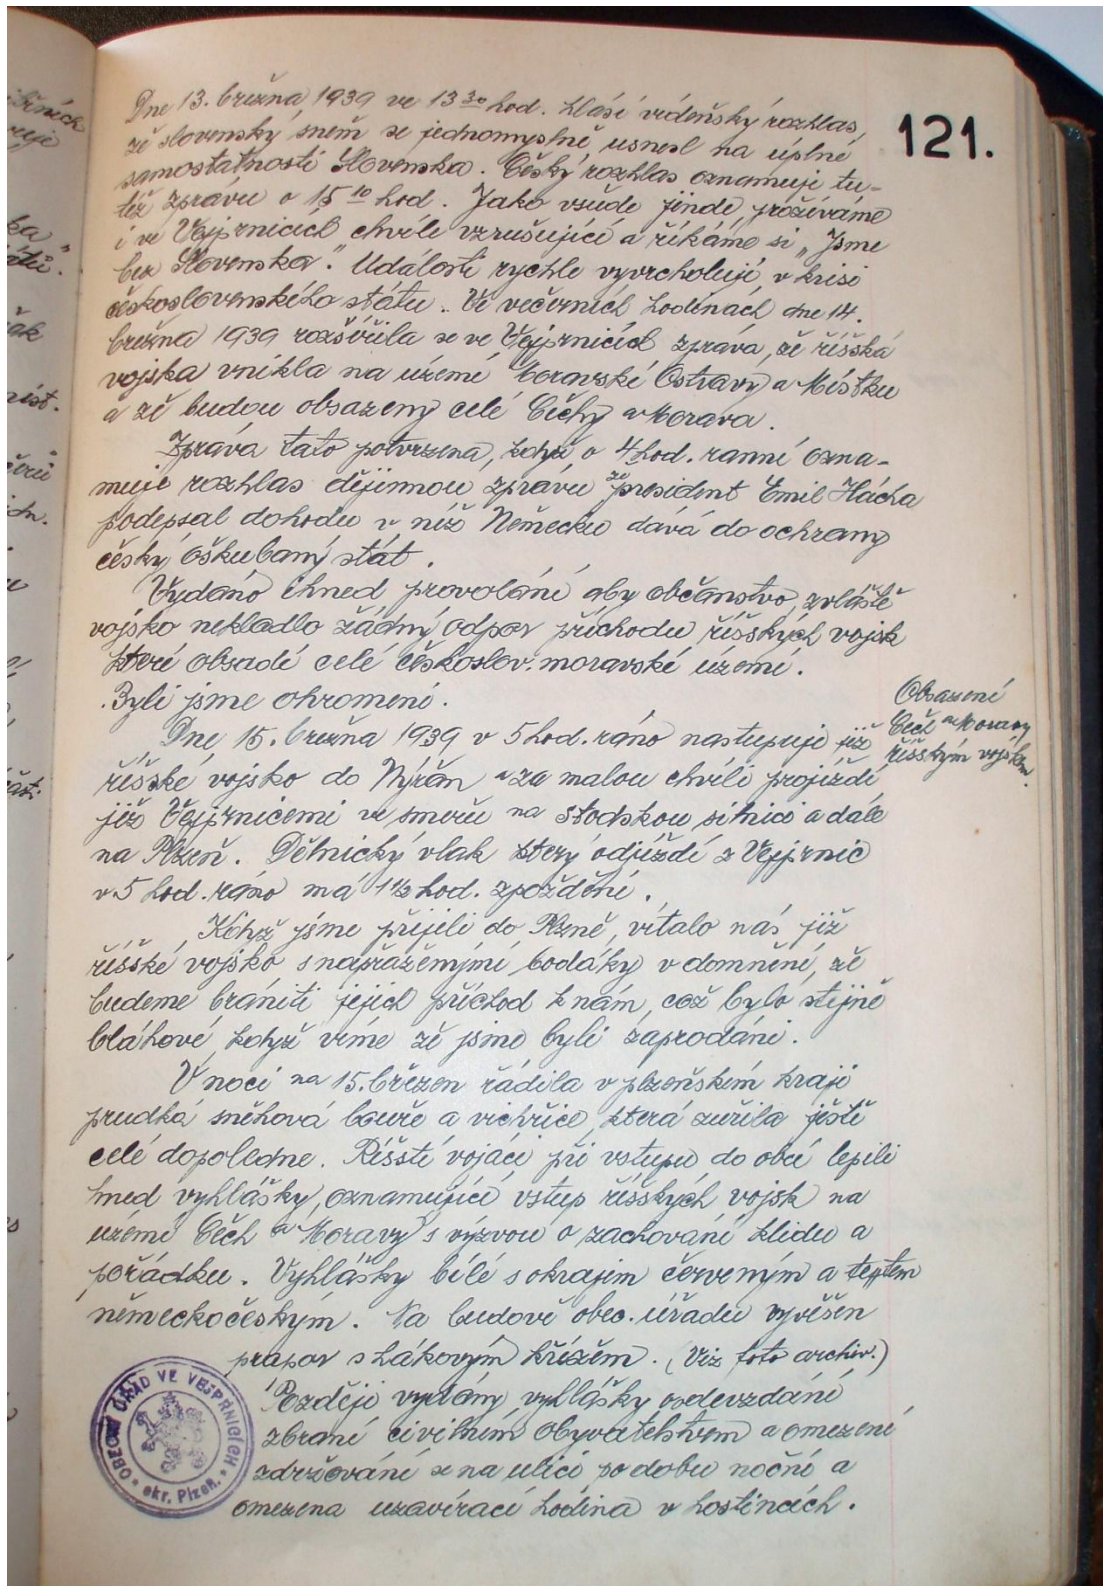 121.
Dne 13. března 1939 ve 13 30 hod. hlásí vídeňský rozhlas,
že slovenský sněm se jednomyslně usnesl na úplné
samostatnosti Slovenska. Český rozhlas oznamuje tu-
též zprávu o 15 10 hod. Jako všude jinde, prožíváme
i ve Vejprnicích chvíle vzrušující a říkáme si „Jsme
bez Slovenska". Události rychle vyvrcholují v krisi
československého státu. Ve večerních hodinách dne 14.
března 1939 rozšířila se ve Vejprnicích zpráva, že říšská
vojska vnikla na území Moravské Ostravy a Místku
a že budou obsazeny celé Čechy a Morava.
Zpráva tato potvrzena, když o 4 hod. ranní ozna-
muje rozhlas dějinnou zprávu že president Emil Hácha
podepsal dohodu v níž Německu dává do ochrany
český oškubaný stát.
Vydáno ihned provolání aby občanstvo, zvláště
vojsko nekladlo žádný odpor příchodu říšských vojsk
které obsadí celé českoslov. moravské území.
Byli jsme ohromeni.
Obsazení
Čech a Moravy
říšským vojskem.
Dne 15. března 1939 v 5 hod. ráno nastupuje již
říšské vojsko do Nýřan a za malou chvíli projíždí
již Vejprnicemi ve směru na stodskou silnici a dále
na Plzeň. Dělnický vlak který odjíždí z Vejprnic
v 5 hod. ráno má 1½ hod. zpoždění.
Když jsme přijeli do Plzně, vítalo nás již
říšské vojsko s napřaženými bodáky v domnění, že
budeme brániti jejich příchod k nám, což bylo stejně
bláhové, když víme že jsme byli zaprodáni.
V noci na 15. březen řádila v plzeňském kraji
prudká sněhová bouře a vichřice, která zuřila ještě
celé dopoledne. Říšští vojáci při vstupu do obcí lepili
hned vyhlášky, oznamující vstup říšských vojsk na
území Čech a Moravy s výzvou o zachování klidu a
pořádku. Vyhlášky bílé s okrajem červeným a textem
německočeským. Na budově obec. úřadu vyvěšen
prapor s hákovým křížem. (Viz foto archiv.)
Později vydány vyhlášky o odevzdání
zbraní civilním obyvatelstvem a omezení
zdržování se na ulici po dobu noční a
omezena uzavírací hodina v hostincích.
OBECNÍ ÚŘAD VE VEJPRNICÍCH
okr. Plzeň.